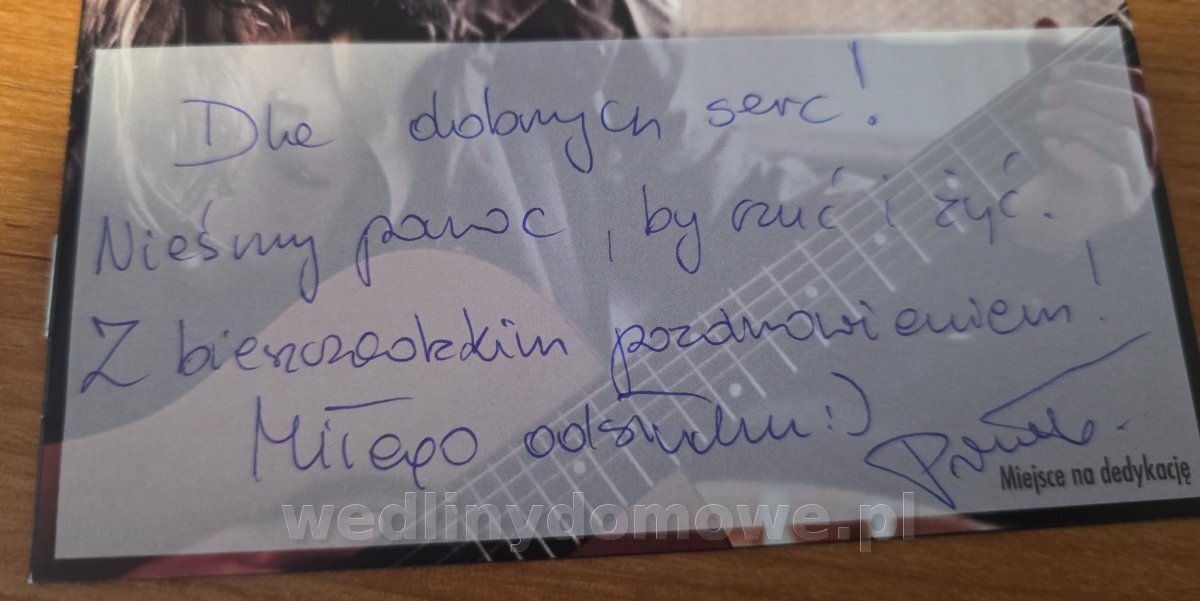 Dla dobrych serc!
Nieśmy pomoc, by czuć i żyć.
Z bieszczadzkim pozdrowieniem!
Miłego odsłuchu :)
Miejsce na dedykację
wedlinydomowe.pl